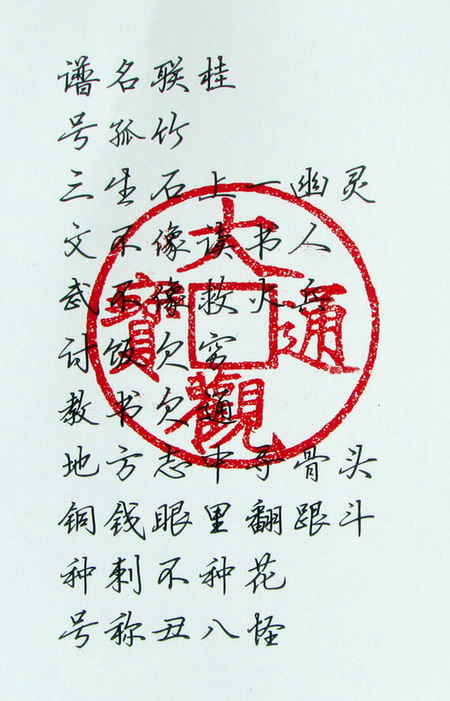 谱名联桂
号孤竹
三生石上一幽灵
文不像读书人
武不像救火兵
讨饭欠穷
教书欠通
地方志中寻骨头
铜钱眼里翻跟斗
种刺不种花
号称丑八怪
大觀通寶